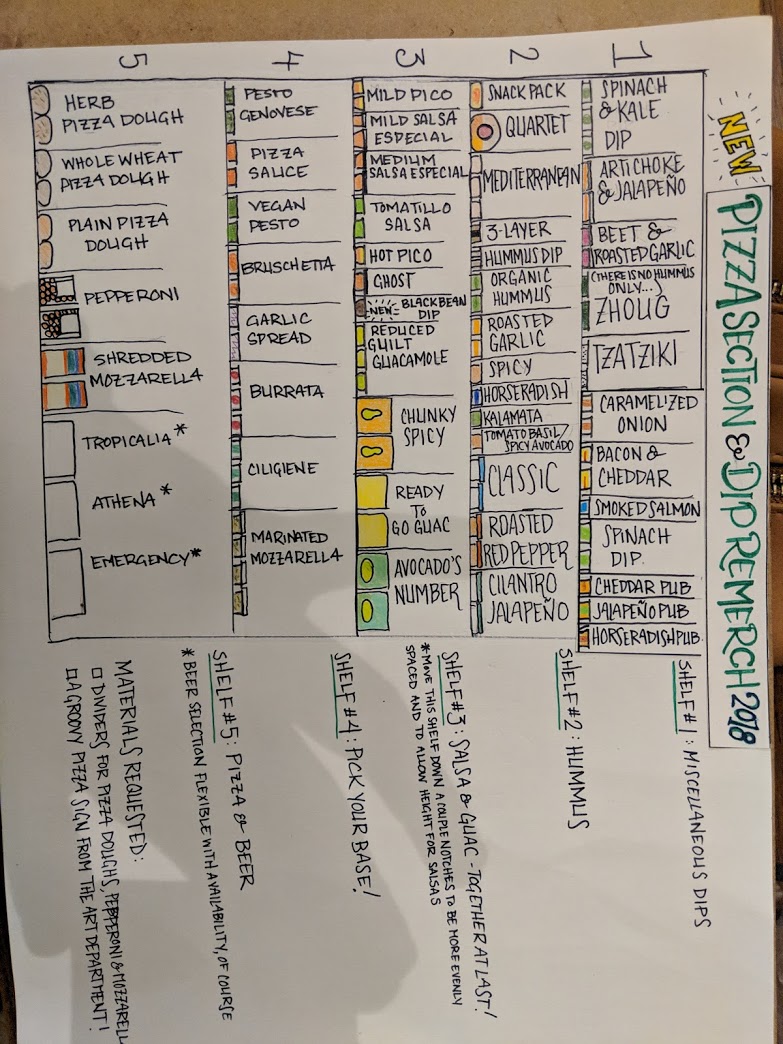 NEW
PIZZA SECTION & DIP REMERCH 2018
1
SPINACH
& KALE
DIP
ARTICHOKE
& JALAPEÑO
BEET &
ROASTED GARLIC
(THERE IS NO HUMMUS
ONLY...)
ZHOUG
TZATZIKI
CARAMELIZED
ONION
BACON &
CHEDDAR
SMOKED SALMON
SPINACH
DIP
CHEDDAR PUB
JALAPEÑO PUB
HORSERADISH PUB
2
SNACK PACK
QUARTET
MEDITERRANEAN
3-LAYER
HUMMUS DIP
ORGANIC
HUMMUS
ROASTED
GARLIC
SPICY
HORSERADISH
KALAMATA
TOMATO BASIL/
SPICY AVOCADO
CLASSIC
ROASTED
RED PEPPER
CILANTRO
JALAPEÑO
3
MILD PICO
MILD SALSA
ESPECIAL
MEDIUM
SALSA ESPECIAL
TOMATILLO
SALSA
HOT PICO
GHOST
NEW BLACK BEAN
DIP
REDUCED
GUILT
GUACAMOLE
CHUNKY
SPICY
READY
TO
GO GUAC
AVOCADO'S
NUMBER
4
PESTO
GENOVESE
PIZZA
SAUCE
VEGAN
PESTO
BRUSCHETTA
GARLIC
SPREAD
BURRATA
CILIGIENE
MARINATED
MOZZARELLA
5
HERB
PIZZA DOUGH
WHOLE WHEAT
PIZZA DOUGH
PLAIN PIZZA
DOUGH
PEPPERONI
SHREDDED
MOZZARELLA
TROPICALIA*
ATHENA*
EMERGENCY*
SHELF #1: MISCELLANEOUS DIPS
SHELF #2: HUMMUS
SHELF #3: SALSA & GUAC - TOGETHER AT LAST!
* MOVE THIS SHELF DOWN A COUPLE NOTCHES TO BE MORE EVENLY
SPACED AND TO ALLOW HEIGHT FOR SALSAS
SHELF #4: PICK YOUR BASE!
SHELF #5: PIZZA & BEER
* BEER SELECTION FLEXIBLE WITH AVAILABILITY, OF COURSE
MATERIALS REQUESTED:
□ DIVIDERS FOR PIZZA DOUGHS, PEPPERONI & MOZZARELL
□ A GROOVY PIZZA SIGN FROM THE ART DEPARTMENT!